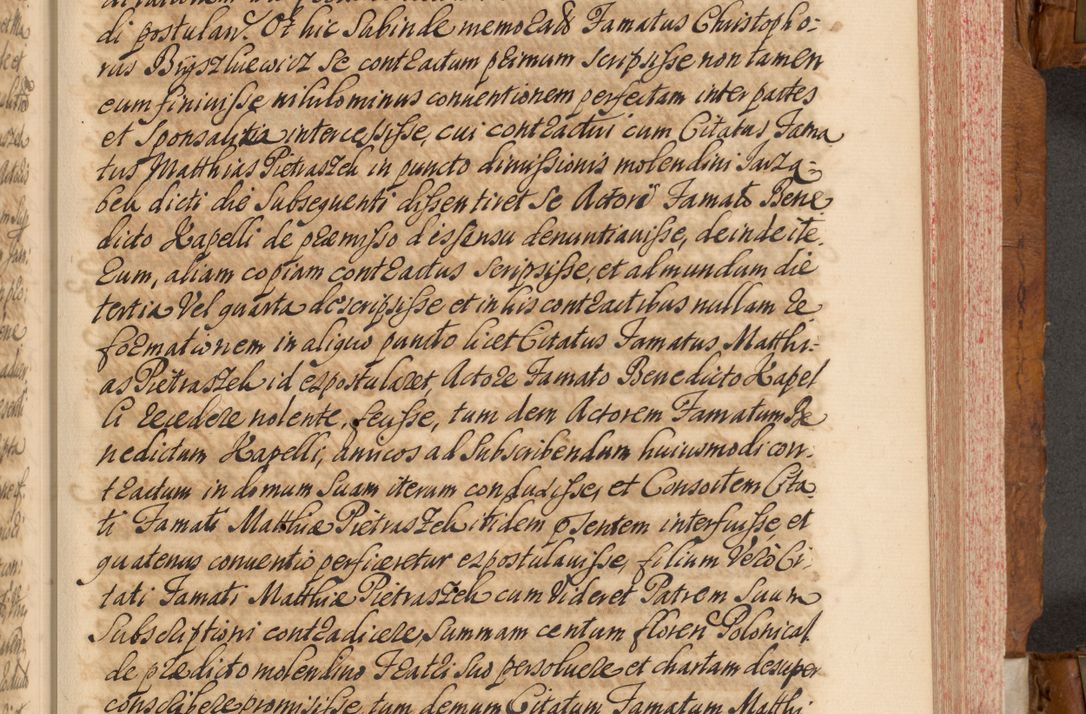 di postulari. Et hic Subinde memorato Famatus Christopho-
rus Bryszkiewicz Se contractum primum scripsisse non tamen
eum finivisse nihilominus conventionem perfectam inter partes
et Sponsalitia intercessisse, cui contractui cum Citatus Fama
tus Matthias Pietraszek in puncto dimissionis molendini Jarza-
bek dicti die Subsequenti dissentiret Se Actori Famato Bene
dicto Kapelli de praemisso dissensu denuntiavisse, deinde ite-
rum, aliam copiam contractus Scripsisse, et ad mundum die
tertia Vel quarta descripsisse et in his contractibus nullam re
formationem in aliquo puncto licet Citatus Famatus Matthi-
as Pietraszek id expostularet, Actore Famato Benedicto Kapel
li recedere nolente, fecisse, tum dem Actorem Famatum Be
nedictum Kapelli, amicos ad Subscribendum huiusmodi con-
tractum in domum Suam iterum conduxisse, et Consortem Cita-
ti Famati Matthiae Pietraszek itidem psentem interfuisse, et
quatenus conventio perficeretur expostulavisse, filium Vero Ci-
tati Famati Matthiae Pietraszek cum Videret Patrem Suum
Subscriptioni contradicere, Summam centum floren Polonical
de praedicto molendino Fratri Suo persolvere et chartam desuper
conscribere promisisse, tum demum Citatum Famatum Matthi